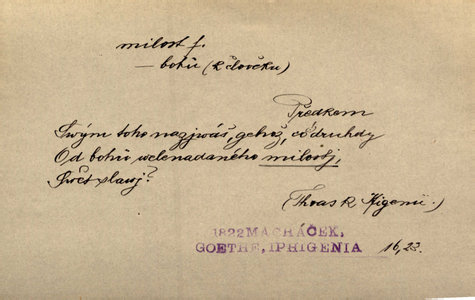 milost f.
— bohů (k člověku)
Předkem
Swým toho nazjwáš, gehož, co druhdy
Od bohů welenadaného milostj,
Swět slawj?
(Thoas k Ifigenii.)
1822 MACHÁČEK,
GOETHE, IPHIGENIA 16, 23.